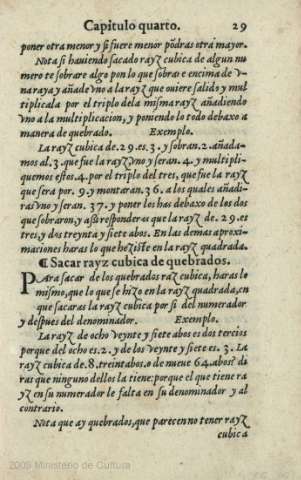 Capitulo quarto. 29
poner otra menor y si fuere menor põdras otra mayor.
Nota si hauiendo sacado rayz cubica de algun nu
mero te sobrare algo pon lo que sobrare encima de v-
na raya y añade vno a la rayz que ouiere salido y mul
tiplicala por el triplo dela misma rayz añadiendo
vno a la multiplicacion, y poniendo lo todo debaxo a
manera de quebrado. Exemplo.
La rayz cubica de .29. es .3. y sobran .2. añada-
mos al .3. que fue la rayz vno y seran .4. y multipli-
quemos estos .4. por el triplo del tres, que fue la rayz
que sera por . 9. y montaran .36. a los quales añadi-
ras vno y seran .37. y poner los has debaxo de los dos
que sobraron, y assi responderas que la rayz de .29. es
tres, y dos treynta y siete abos. En las demas aproxi-
maciones haras lo que heziste en la rayz quadrada.
¶ Sacar rayz cubica de quebrados.
PAra sacar de los quebrados raz cubica, haras lo
mismo, que lo que se hizo en la rayz quadrada, en
que sacaras la rayz cubica por si del numerador
y despues del denominador. Exemplo.
La rayz de ocho veynte y siete abos es dos tercios
porque del ocho es .2. y de los veynte y siete es .3. La
rayz cubica de .8. treintabos. o de nueue 64. abos? di
ras que ninguno dellos la tiene: porque el que tiene ra
yz en su numerador le falta en su denominador y al
contrario.
Nota que ay quebrados, que parecen no tener rayz
cubica
2009 Ministerio de Cultura